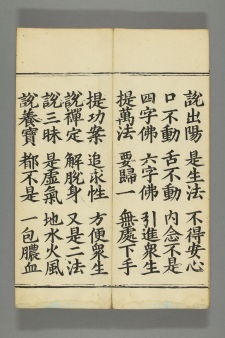 說出陽 是生法 不得安心
口不動 舌不動 內念不是
四字佛 六字佛 引進衆生
提萬法 要歸一 無處下手
提功案 追求性 方便衆生
說禪定 解脫身 又是二法
說三昧 是虛氣 地水火風
說養寶 都不是 一包膿血